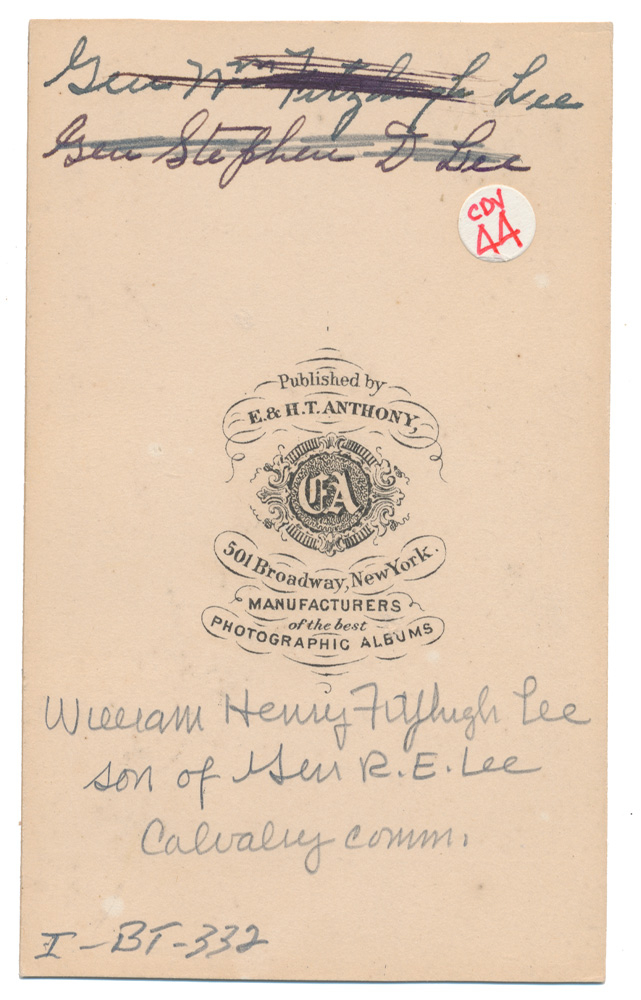 Gen Wm Fitzhugh Lee
Gen Stephen D. Lee
CDV
44
Published by
E. & H.T. ANTHONY,
EA
501 Broadway, New York.
MANUFACTURERS
of the best
PHOTOGRAPHIC ALBUMS
William Henry Fitzhugh Lee
son of Gen R.E. Lee
Calvalry comm.
I-BT-332